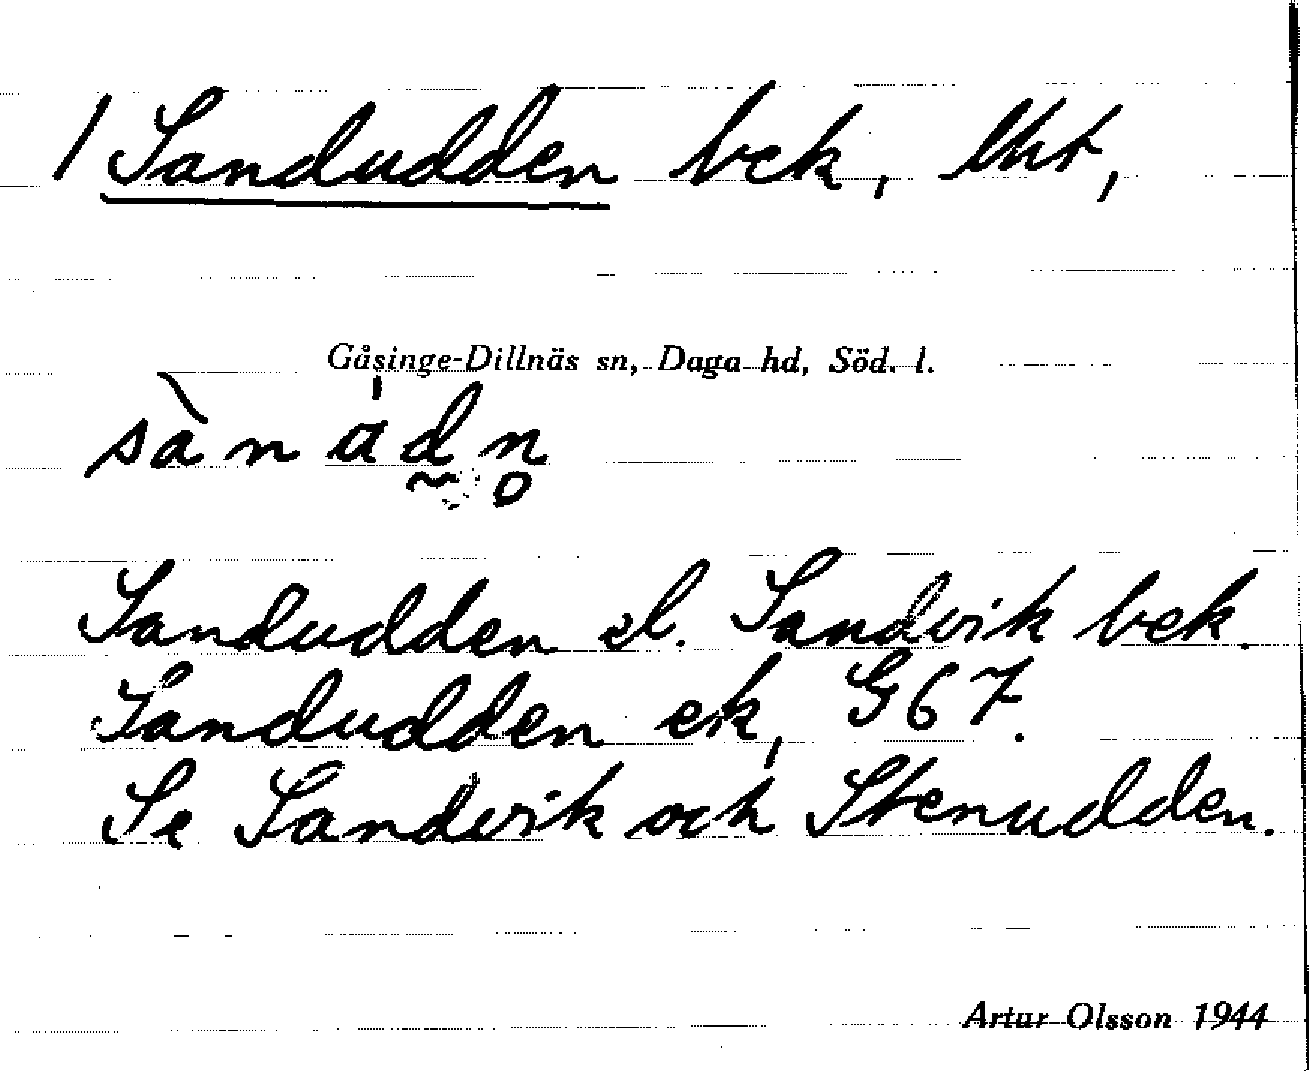 1 Sandudden bek, lht,
Gåsinge-Dillnäs sn, Daga hd, Söd. l.
Sandudden el. Sandvik bek.
Sandudden ek, G67.
Se Sandvik och Stenudden.
Artur Olsson 1944